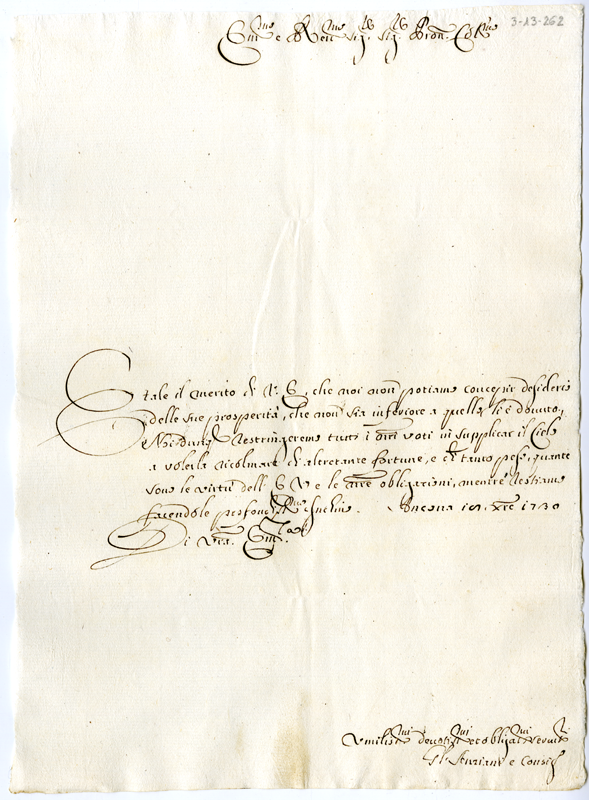 3-13-262
Em.mo e Rev.mo Sig.r Sig.r Pron. Col.mo
È tale il merito di V. E. che noi non potiamo concepir desiderio
delle sue prosperità, che non sia inferiore a quello li è dovuto,
e Noi dunq. restringeremo tutti i nri voti in supplicar il Cielo
a volerla ricolmare di altretante fortune, e di tanto peso, quante
sono le virtù dell E V e le nre obligazioni, mentre restiamo
facendole profond.mo Inchino. Ancona 16 Xbre 1730
Di Vra. Em.za
Umiliss.mi devotiss.mi et obligat.mi Servit.ri
Gl' Anziani e Consig